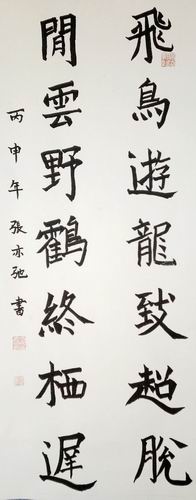 飛鳥遊龍致超脫
閒雲野鶴終栖遲
丙申年 張亦弛 書